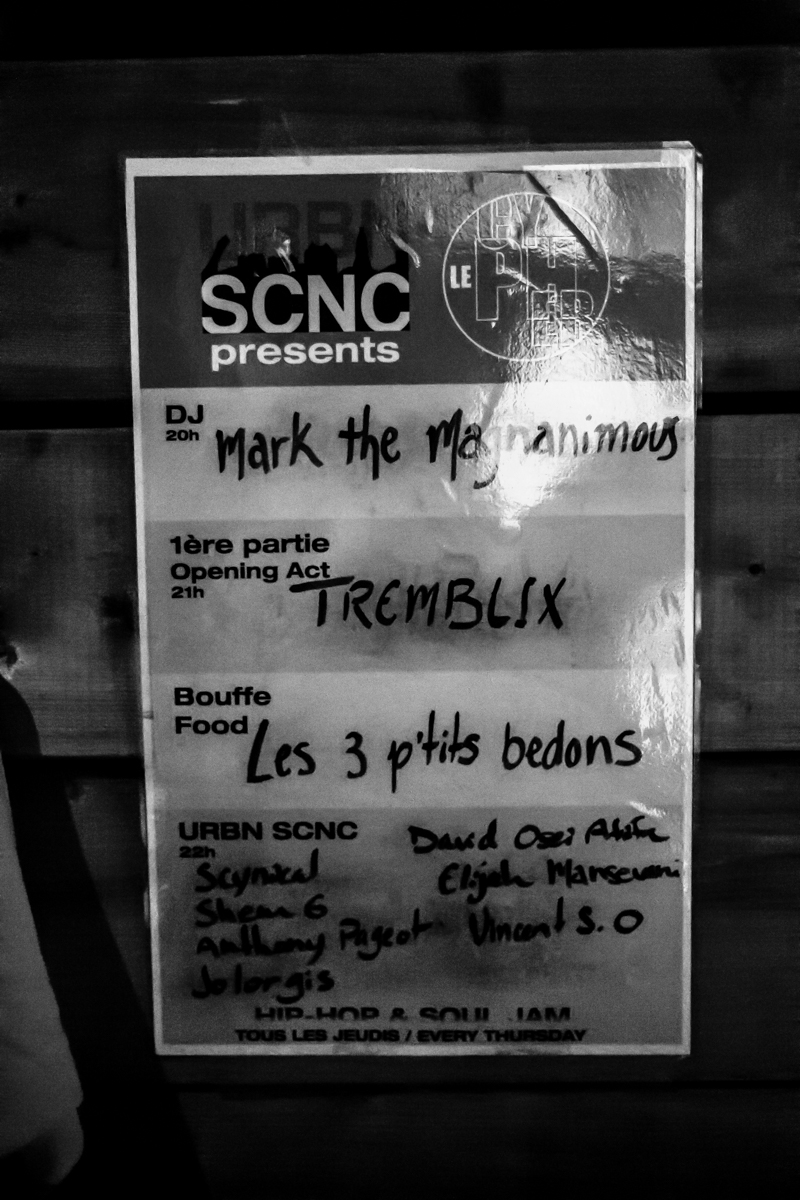 URBN
SCNC
presents
LE
CYPHER
DJ
20h
Mark the Magnanimous
1ère partie
Opening Act
21h
TREMBLIX
Bouffe
Food
Les 3 p'tits bedons
URBN SCNC
22h
Scynical
Shem G
Anthony Pageot
Jolorgis
David Osei
Elijah
Vincent S. O
HIP-HOP & SOUL JAM
TOUS LES JEUDIS / EVERY THURSDAY